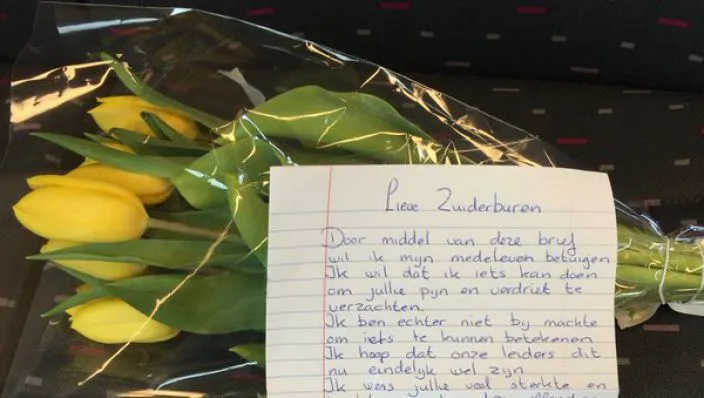 Lieve Zuiderburen
Door middel van deze brief
wil ik mijn medeleven betuigen
Ik wil dat ik iets kan doen
om jullie pijn en verdriet te
verzachten.
Ik ben echter niet bij machte
om iets te kunnen betekenen
Ik hoop dat onze leiders dit
nu eindelijk wel zijn
Ik wens jullie veel sterkte en